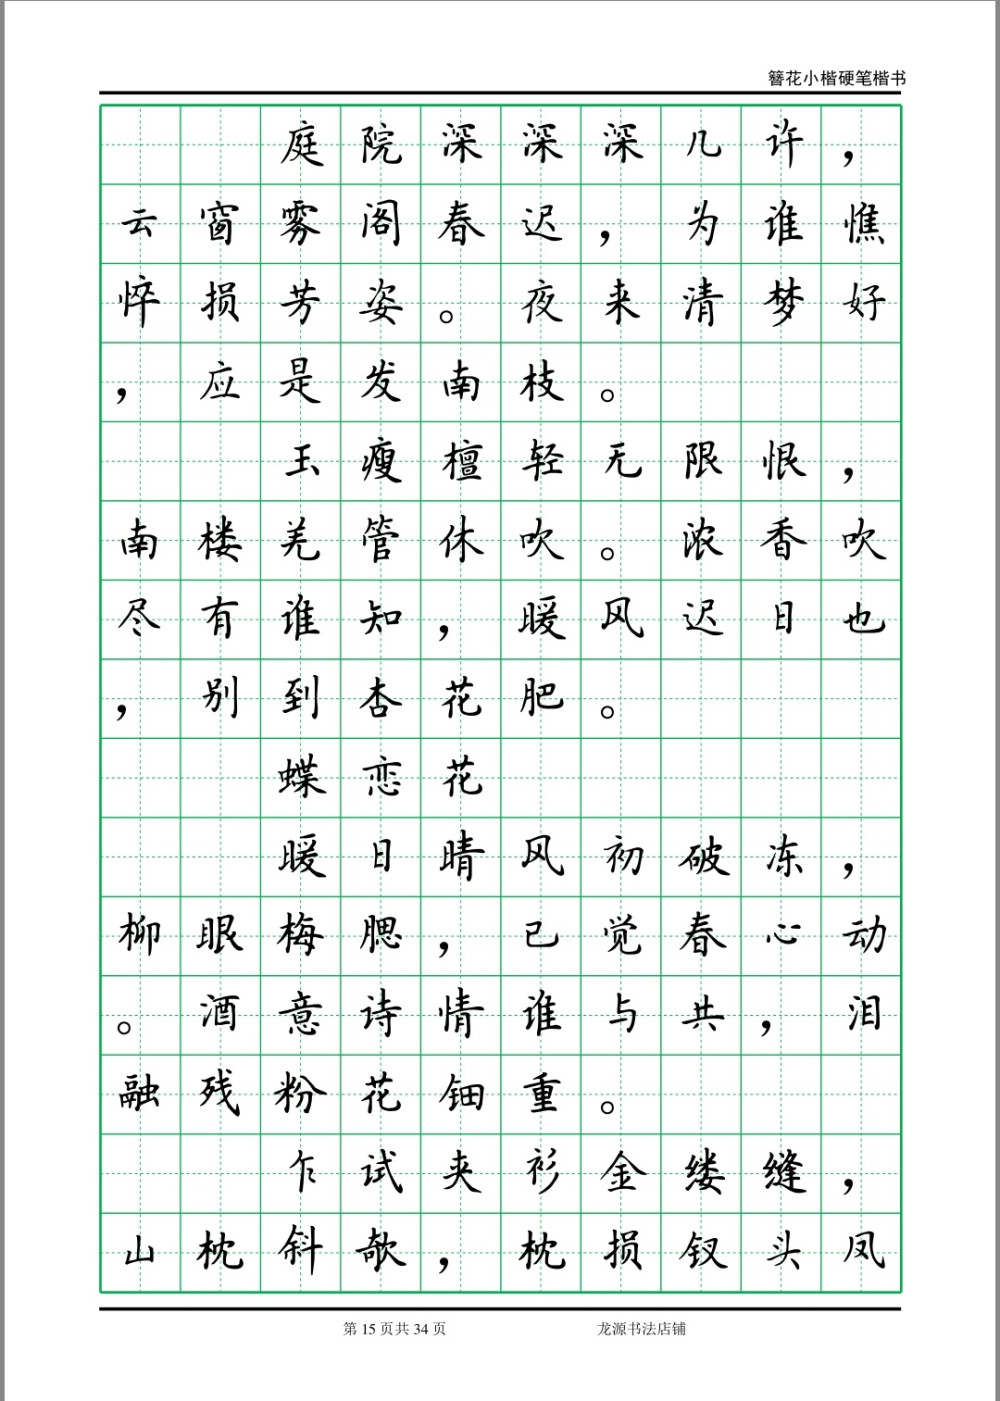 簪花小楷硬笔楷书
庭院深深深几许，
云窗雾阁春迟，为谁憔
悴损芳姿。夜来清梦好
，应是发南枝。
玉瘦檀轻无限恨，
南楼羌管休吹。浓香吹
尽有谁知，暖风迟日也
，别到杏花肥。
蝶恋花
暖日晴风初破冻，
柳眼梅腮，已觉春心动
。酒意诗情谁与共，泪
融残粉花钿重。
乍试夹衫金缕缝，
山枕斜欹，枕损钗头凤
第 15 页共 34 页 龙源书法店铺